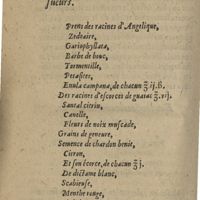 sueurs.
Prens des racines d'Angelique,
Zedoaire,
Gariophyllata,
Barbe de bouc,
Tormentille,
Petasites,
Enula campana, de chacun ℥ ij.ß.
Des racines d'escorces de guaiac ℥.vij.
Santal citrin,
Canelle,
Fleurs de noix muscade,
Grains de geneure,
Semence de chardon benit,
Citron,
Et son écorce, de chacun ℥ j.
De dictame blanc,
Scabieuse,
Menthe rouge,